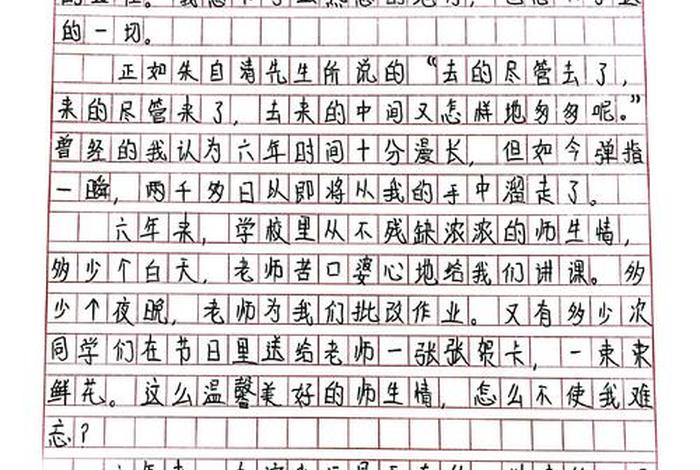 的一切。
正如朱自清先生所说的“去的尽管去了，
来的尽管来了，去来的中间又怎样地匆匆呢。”
曾经的我认为六年时间十分漫长，但如今弹指
一瞬，两千多日以即将从我的手中溜走了。
六年来，学校里从不残缺浓浓的师生情，
多少个白天，老师苦口婆心地给我们讲课。多
少个夜晚，老师为我们批改作业。又有多少次
同学们在节日里送给老师一张张贺卡，一束束
鲜花。这么温馨美好的师生情，怎么不使我难
忘？